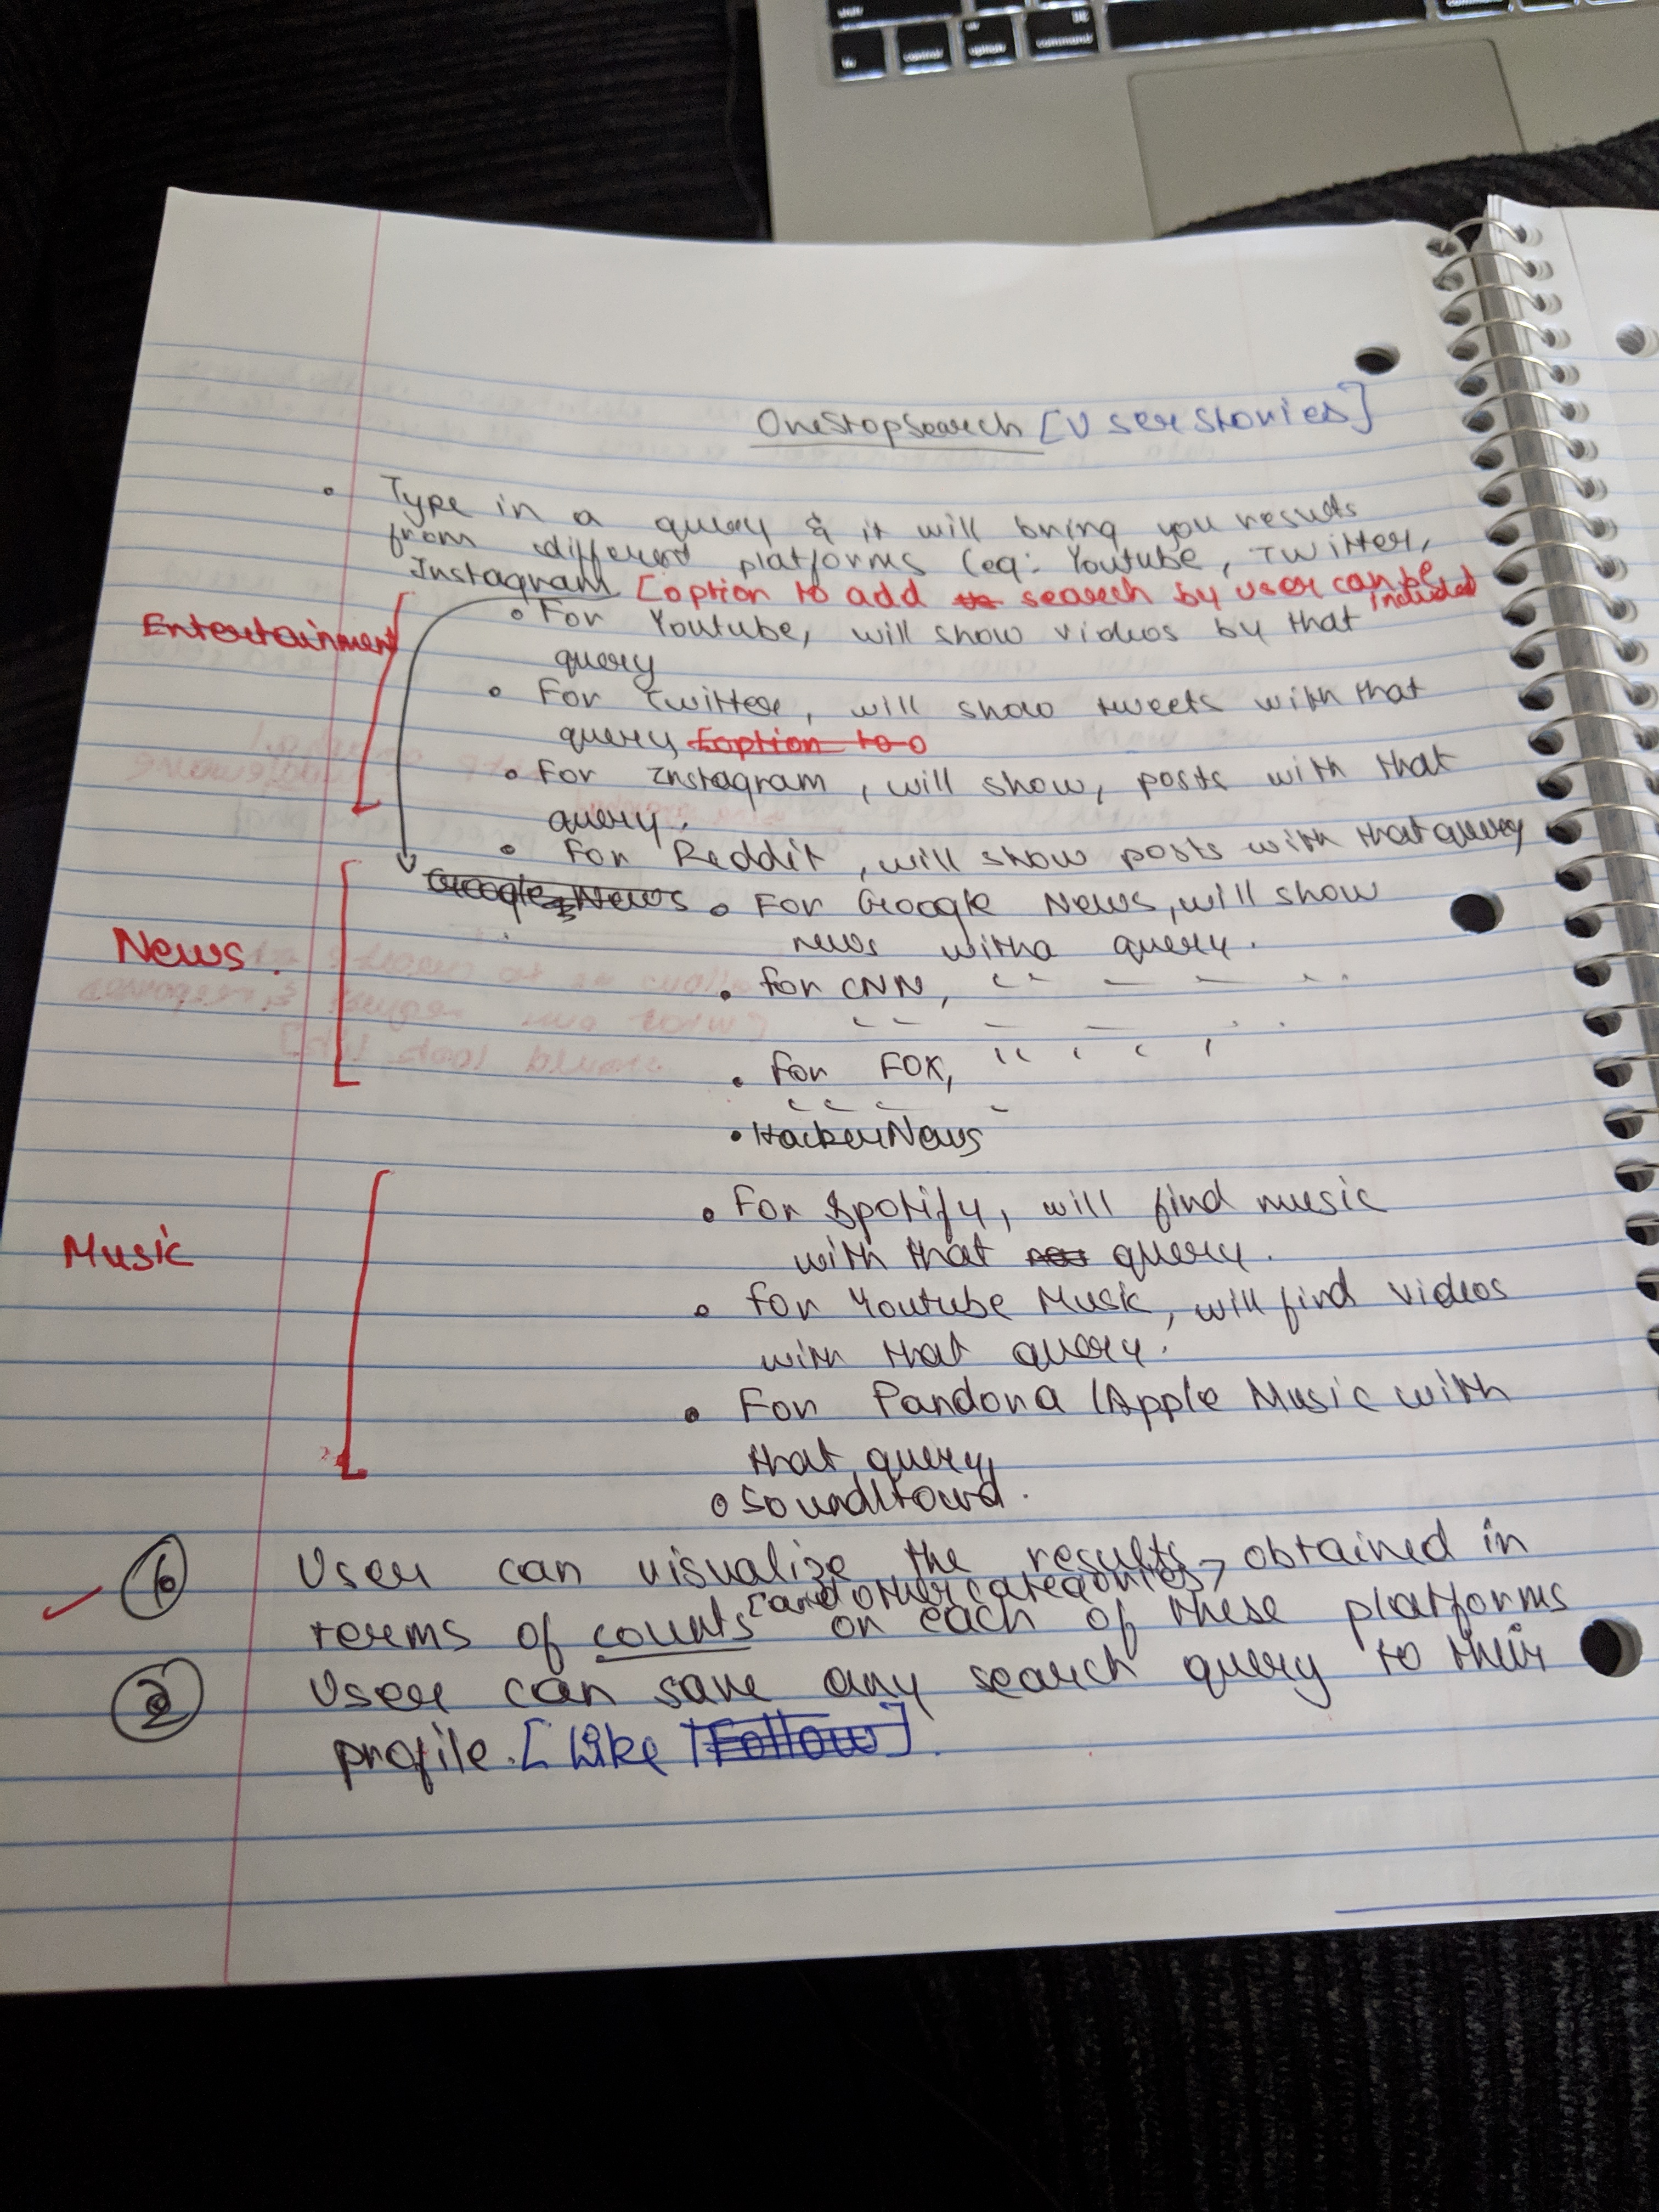 OneStopSearch [User Stories]
• Type in a query & it will bring you results
from different platforms (eg: Youtube, Twitter,
Instagram [option to add search by user can be included
Entertainment
• For Youtube, will show videos by that
query
• For Twitter, will show tweets with that
query [option to
• For Instagram, will show, posts with that
query.
• For Reddit, will show posts with that query
Google News
• For Google News, will show
news with a query.
News.
• For CNN, " — — "
• For FOX, "
• HackerNews
• For Spotify, will find music
with that query.
Music
• For Youtube Music, will find videos
with that query.
• For Pandora / Apple Music with
that query
• Soundcloud.
① User can visualize the results, obtained in
[and other categories]
terms of counts on each of these platforms
② User can save any search query to their
profile. [Like Follow].
command
option
control
fn
shift